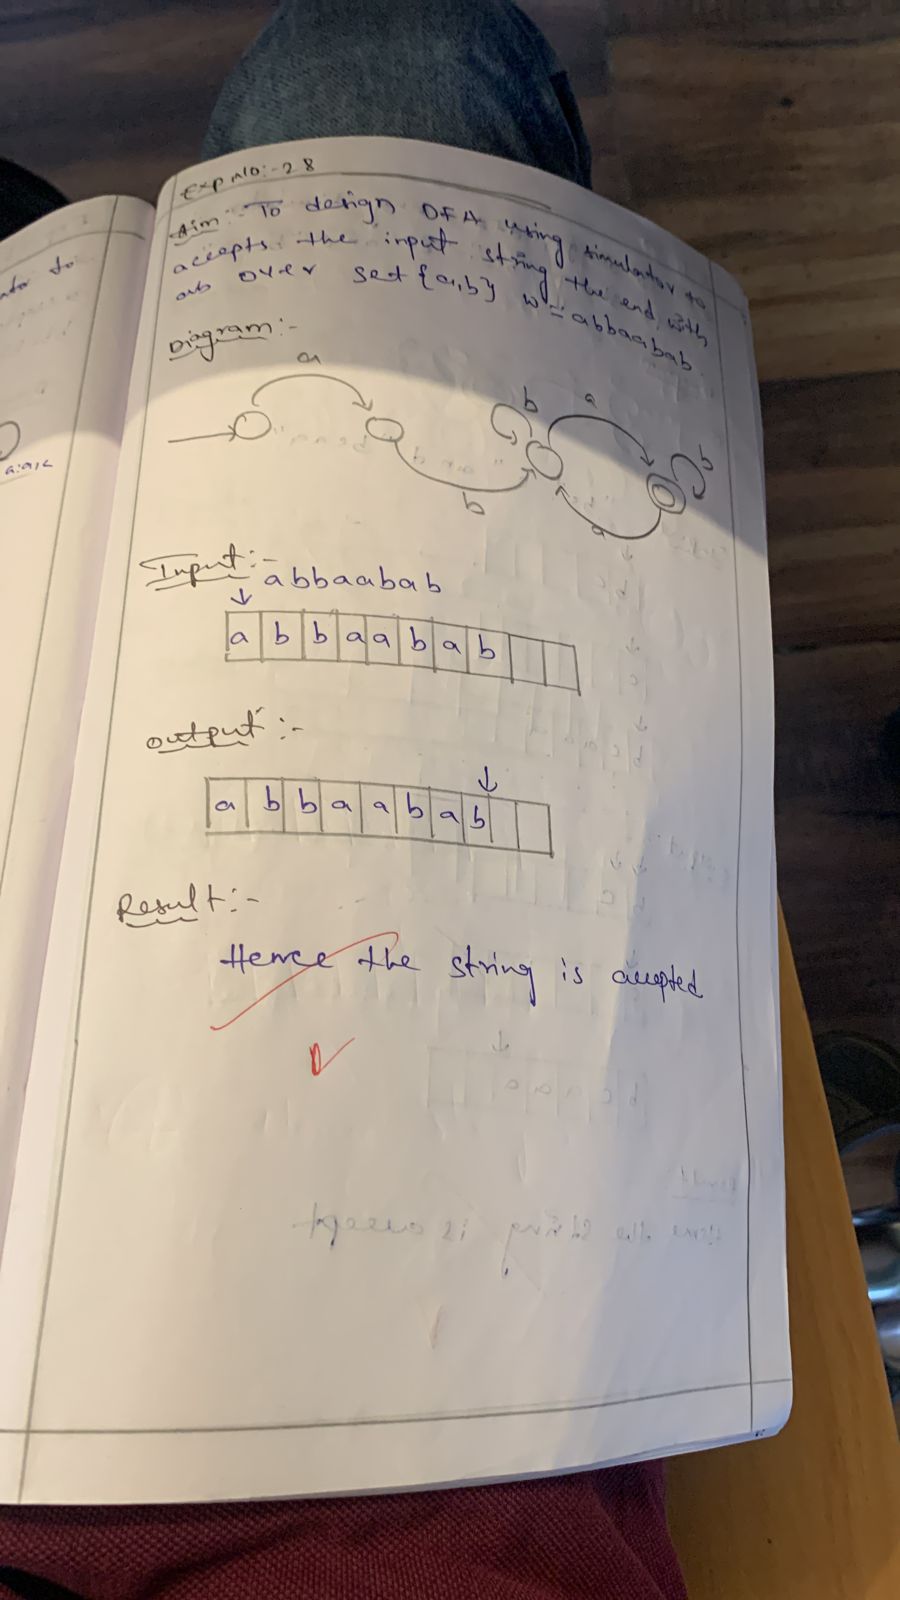 Exp No:- 28
Aim:- To design DFA using simulator to
accepts the input string the end with
ab over set {a,b} w = abbaabab
Diagram:-
a
b
a
b
b
a
Input:-
abbaabab
a b b a a b a b
output:-
a b b a a b a b
Result:-
Hence the string is accepted
to